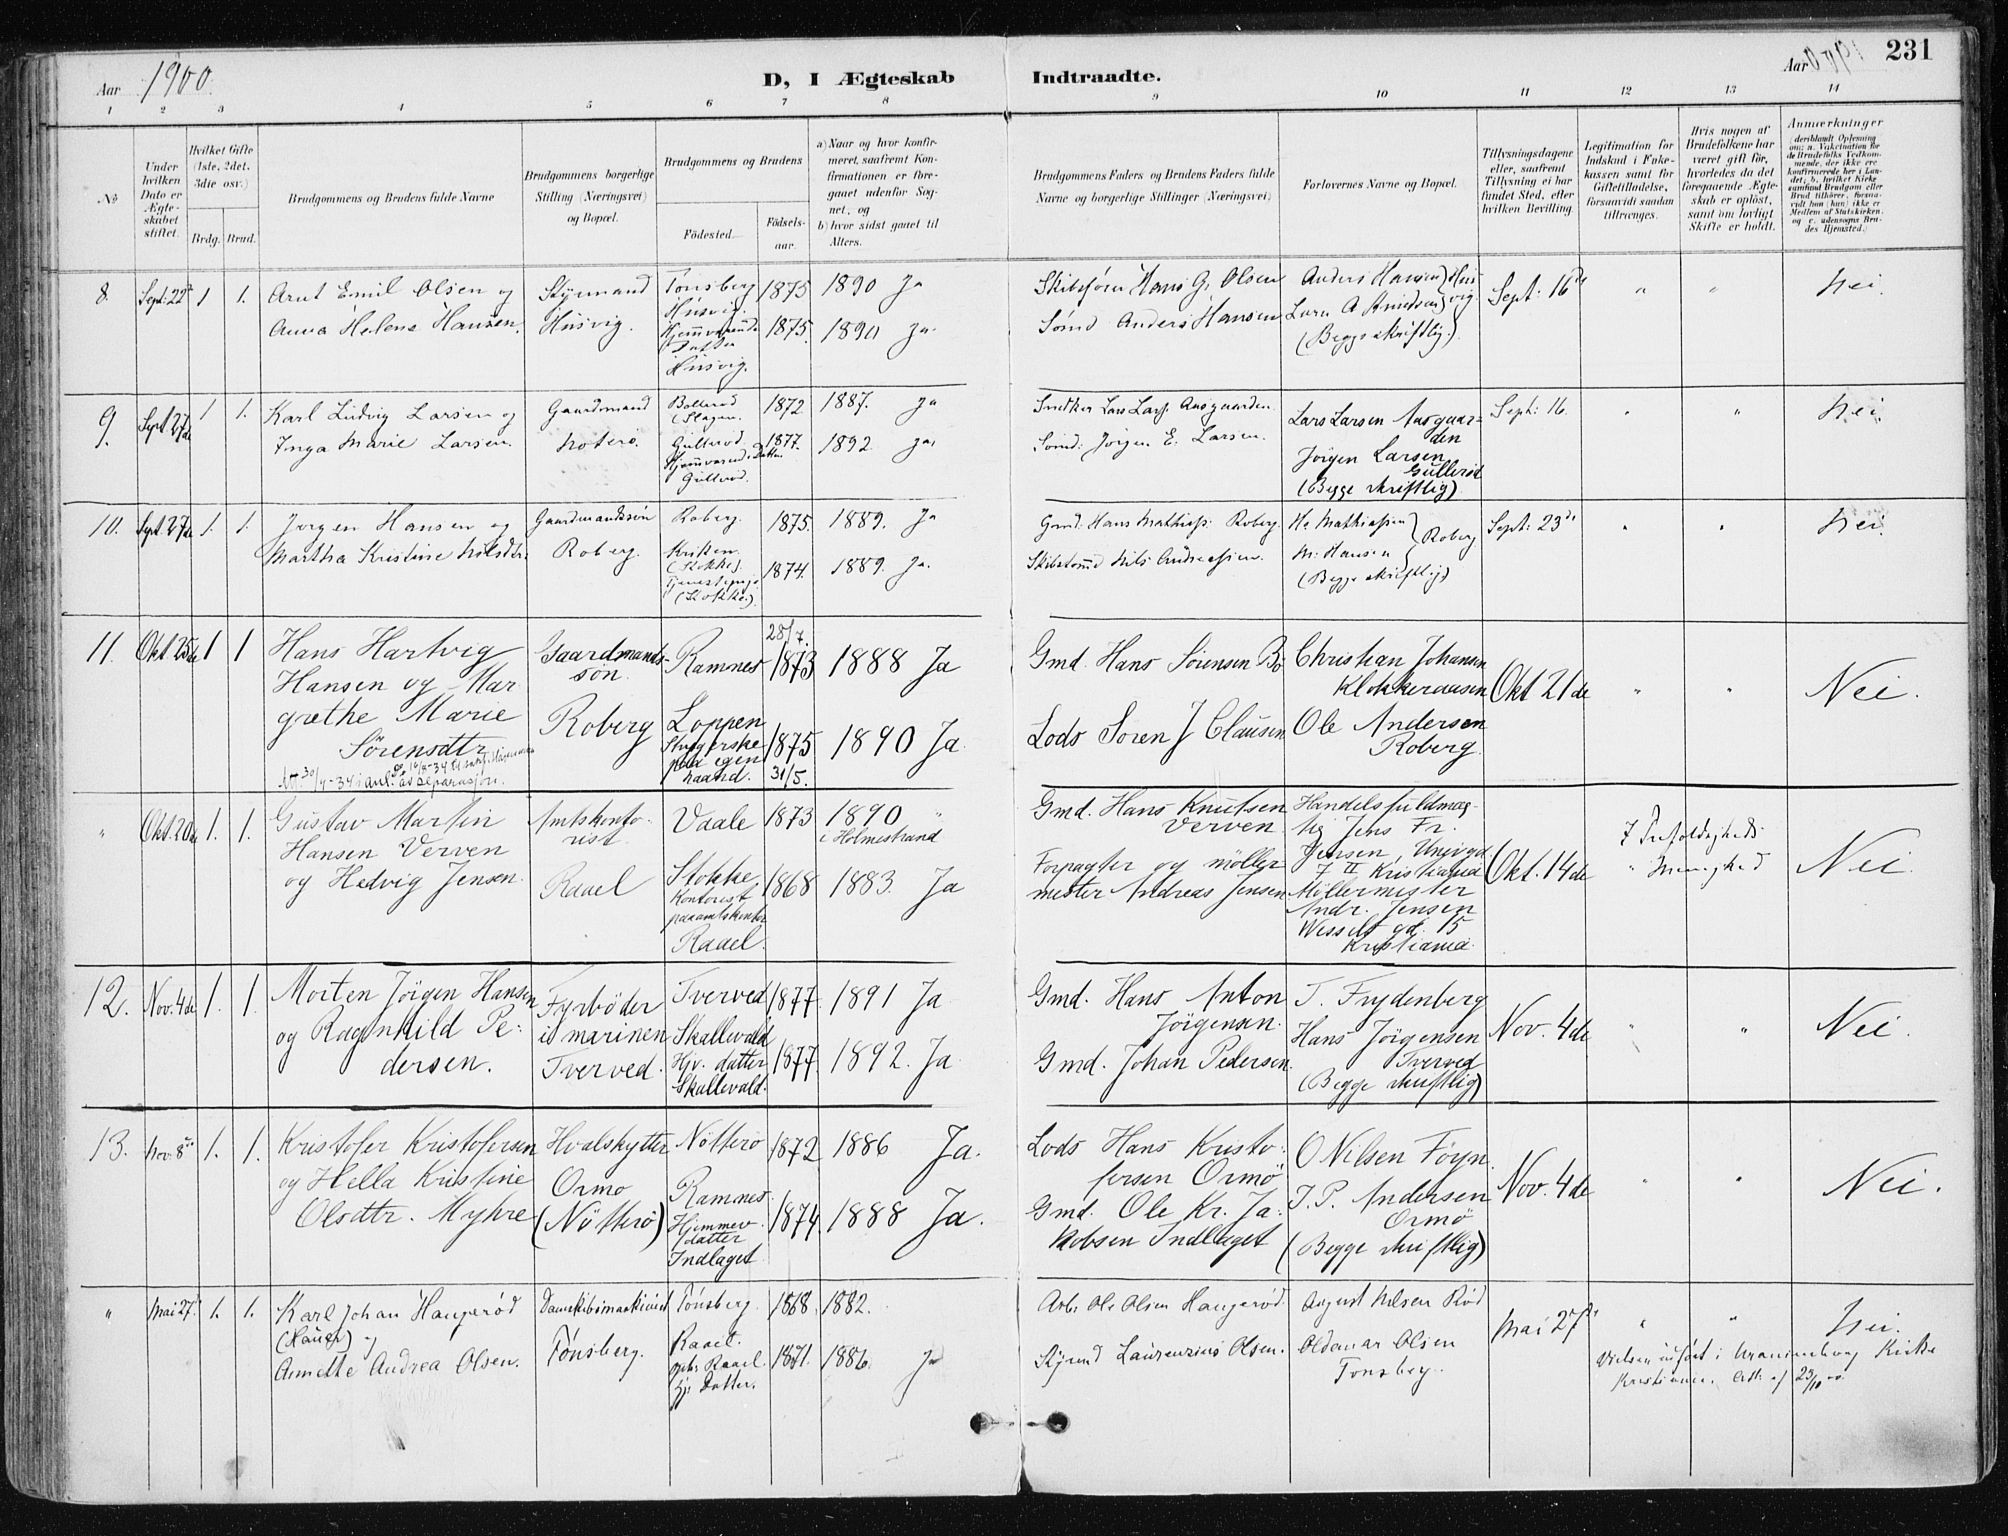 Aar 1900. D, I Ægteskab Indtraadte. Aar 1900 231
1 2 3 4 5 6 7 8 9 10 11 12 13 14
No.
Under hvilken Dato er Ægteskabet stiftet.
Hvilket Gifte (1ste, 2det, 3die osv.)
Brdg. Brud.
Brudgommens og Brudens fulde Navne
Brudgommens borgerlige Stilling (Næringsvei) og Bopæl.
Brudgommens og Brudens
Fødested. Fødselsaar.
a) Naar og hvor konfirmeret, saafremt Konfirmationen er foregaaet udenfor Sognet, og
b) hvor sidst gaaet til Alters.
Brudgommens Faders og Brudens Faders fulde Navne og borgerlige Stillinger (Næringsvei)
Forlovernes Navne og Bopæl.
Tillysningsdagene eller, saafremt Tillysning ei har fundet Sted, efter hvilken Bevilling.
Legitimation for Indskud i Enkekassen samt for Giftetilladelse, forsaavidt saadan tiltrænges.
Hvis nogen af Brudefolkene har været gift før, hvorledes da det foregaaende Ægteskab er opløst, samt om lovligt Skifte er holdt.
Anmærkninger
8. Sept: 22d 1 1. Arnt Emil Olsen og
Anna Helene Hansen.
Styrmand
Husvig.
Tønsberg
Husvig.
Hjemmeværende
Datter
Husvig.
1875
1875.
1890 Ja
1890 Ja.
Skibsfører Hans G. Olsen
Sømd Anders Hansen
Anders Hansen
(Begge skriftlig.)
Sept: 16de " " Nei.
9. Sept 27de 1 1. Karl Ludvig Larsen og
Inga Marie Larsen.
Gaardmand
Noterø.
(Slagen.
Gullerød
Gullerød.
1872
1877.
1887. Ja
1892. Ja.
Snedker Lars Lars. Aasgaarden.
Sømd: Jørgen E. Larsen.
Lars Larsen Aasgaar-
den
Jørgen Larsen
Gullerød
(Begge skriftlig)
Sept: 16. " " Nei.
10. Sept 27de 1. 1. Jørgen Hansen og
Martha Kristine Nilsdtr.
Gaardmandssøn
Roberg.
Roberg.
(Stokke)
(Stokke).
1875.
1874.
1889. Ja
1889. Ja.
Gmd: Hans Mathiass: Roberg.
Skibstømmd Nils Andreassen.
H. Mathiassen
M. Hansen
Roberg
(Begge skriftlig)
Sept: 23de " " Nei.
11. Okt 25de 1 1 Hans Hartvig
Hansen og Mar
grethe Marie
Sörensdtr
Gaardmands-
søn.
Roberg
Ramnes
Loppen
Strygerske
paa egen
haand.
28/7.
1873
1875
31/5.
1888 Ja
1890 Ja.
Gmd. Hans Sörensen Bø
Lods Sören J Clausen
Christian Johansen
Klokkeraasen
Ole Andersen
Roberg.
Okt 21de " " Nei.
" Okt. 20de 1. 1. Gustav Martin
Hansen Verven
og Hedvig Jensen.
Amtskonto-
rist
Raael
Vaale
Stokke
Kontorist
paa amtskontor
Raael.
1873
1868
1890 "
i Holmestrand
1883. Ja
Gmd. Hans Knutsen
Verven.
Forpagter og møller
mester Andreas Jensen
Handelsfuldmæg-
tig Jens Fr.
Jensen,
7 II Kristiania
Møllermester
Andr. Jensen
Wessels gd. 15
Kristiania.
Okt. 14de
Menighed
Nei.
12. Nov. 4de 1. 1. Morten Jörgen Hansen
og Ragnhild Pe-
dersen.
Fyrbøder
i marinen
Tverved.
Tverved
Skallevald
Hjv. datter
Skallevald.
1877.
1877.
1891 Ja
1892. Ja
Gmd. Hans Anton
Jörgensen.
Gmd. Johan Pedersen.
T. Frydenberg
Hans Jörgensen
Tverved
(Begge skriftlig)
Nov. 4de " " Nei.
13. Nov. 8de 1. 1. Kristofer Kristofersen
og Hella Kristine
Olsdtr. Myhre
Hvalskytter
Ormø
(Nötterö)
Nötterö
Ramnes.
Hjemmev.
datter
Indlaget
1872
1874.
1886 Ja.
1888 Ja.
Lods Hans Kristo-
fersen Ormö
Gmd. Ole Kr. Ja-
kobsen Indlaget
O Nilsen Föyn.
J. P. Andersen
Ormö
(Begge skriftlig)
Nov. 4de " " Nei.
" Mai 27. 1. 1. Karl Johan Haugerød
(Hauer) og
Annette Andrea Olsen.
Damskibsmaskinist
Tønsberg.
Tønsberg.
Raael.
Raael
Datter.
1868.
1871.
1882.
1886. Ja
Arb. Ole Olsen Haugerød.
Styrmd Laurenzius Olsen.
August Nilsen Rød
Oldemar Olsen
Tønsberg.
Mai 27de " " Nei.
Vielsen udført i Uranienborg Kirke
Kristiania. Att. af 23/10-0.